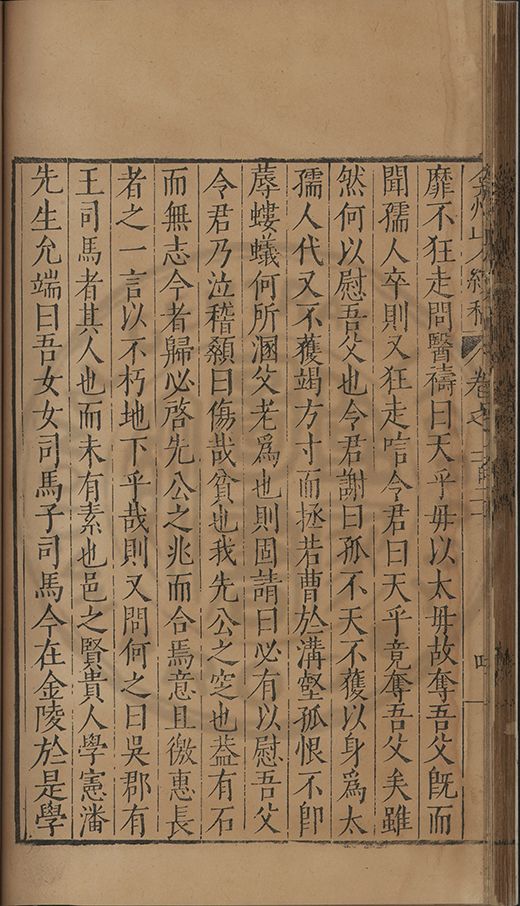 弇州山人續稿 卷之一百二十 四
靡不狂走問醫禱曰天乎毋以太毋故奪吾父旣而
聞孺人卒則又狂走唁令君曰天乎竟奪吾父矣雖
然何以慰吾父也令君謝曰孤不天不獲以身爲太
孺人代又不獲竭方寸而拯若曹於溝壑孤恨不卽
蓐螻蟻何所溷父老爲也則固請曰必有以慰吾父
令君乃泣稽顙曰傷哉貧也我先公之窆也葢有石
而無志今者歸必啓先公之兆而合焉意且徼惠長
者之一言以不朽地下乎哉則又問何之曰吳郡有
王司馬者其人也而未有素也邑之賢貴人學憲潘
先生允端曰吾女女司馬子司馬今在金陵於是學